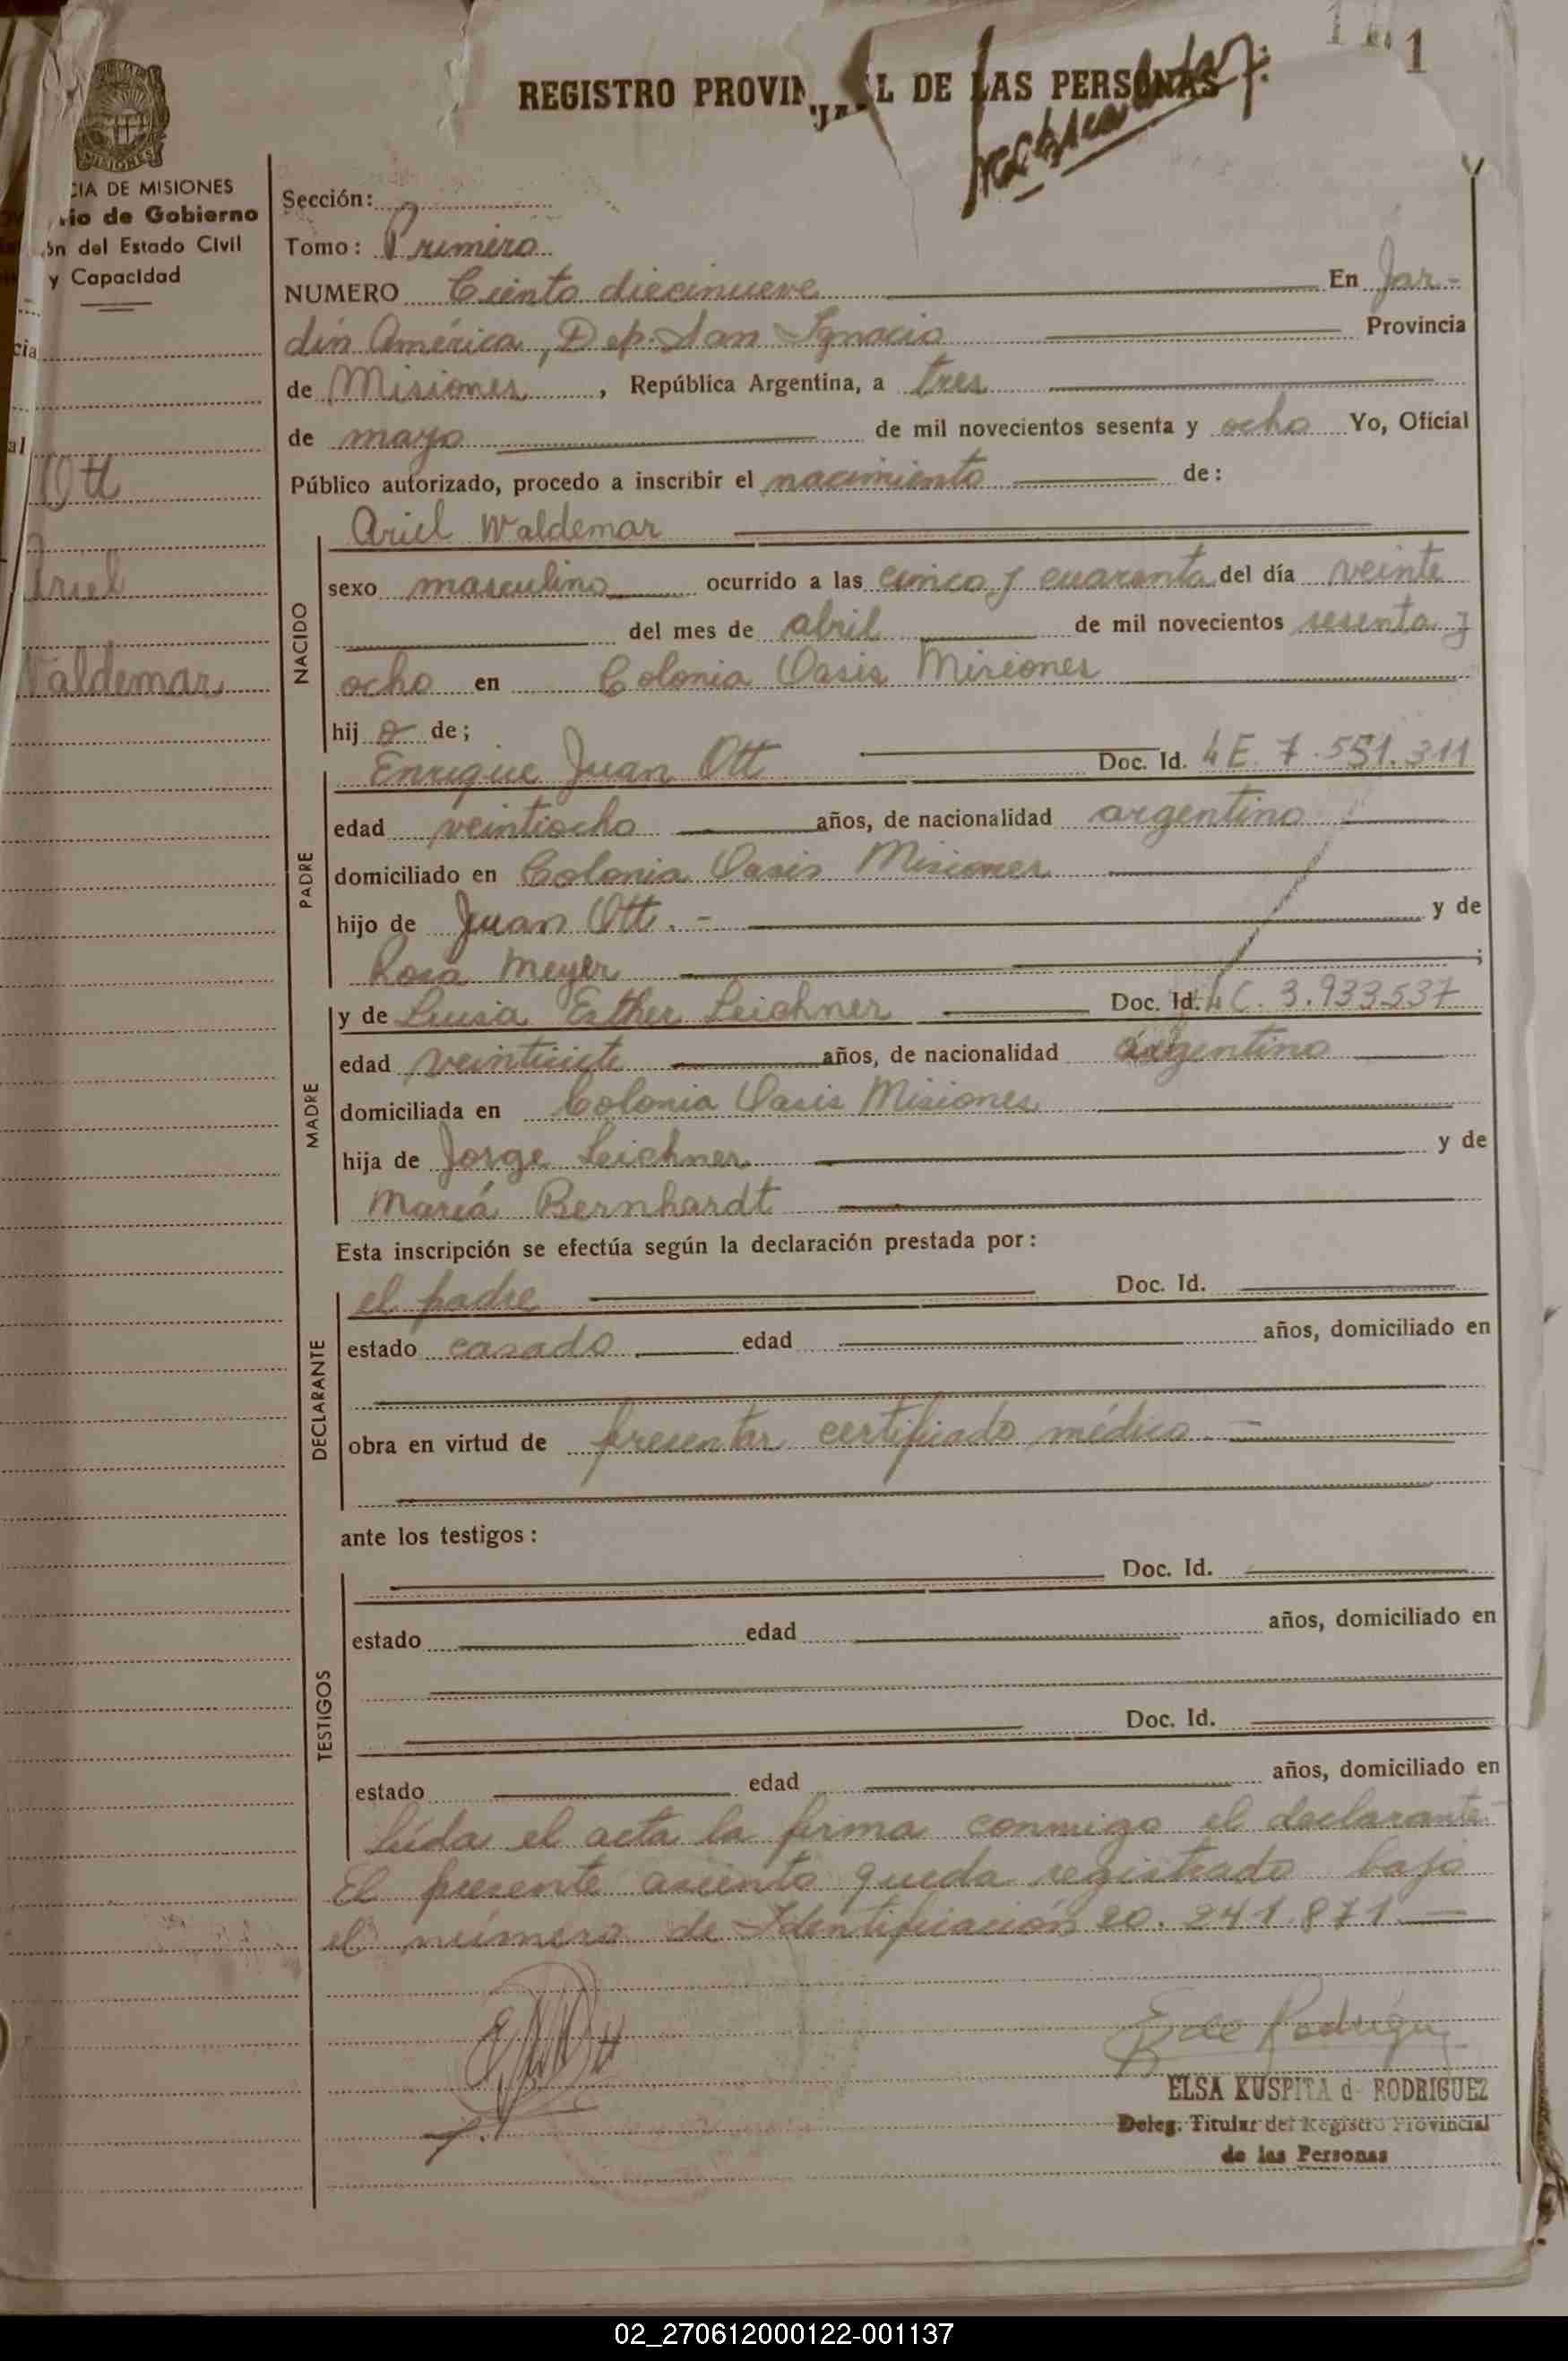 REGISTRO PROVIN L DE LAS PERSONAS
1
MISIONES
CIA DE MISIONES
rio de Gobierno
ón del Estado Civil
y Capacidad
cia
al
Ott
Ariel
Waldemar
Sección:
Tomo: Primero
NUMERO Ciento diecinueve En Jar-
dín América, Dep. San Ignacio Provincia
de Misiones, República Argentina, a tres
de mayo de mil novecientos sesenta y ocho Yo, Oficial
Público autorizado, procedo a inscribir el nacimiento de:
NACIDO
Ariel Waldemar
sexo masculino ocurrido a las cinco y cuarenta del día veinte
del mes de abril de mil novecientos sesenta y
ocho en Colonia Oasis Misiones
hij o de;
PADRE
Enrique Juan Ott Doc. Id. LE. 7.551.311
edad veintiocho años, de nacionalidad argentino
domiciliado en Colonia Oasis Misiones
hijo de Juan Ott.- y de
Rosa Meyer ;
MADRE
y de Luisa Esther Leichner Doc. Id. LC. 3.933537
edad veintisiete años, de nacionalidad argentino
domiciliada en Colonia Oasis Misiones
hija de Jorge Leichner y de
María Bernhardt
Esta inscripción se efectúa según la declaración prestada por:
DECLARANTE
el padre Doc. Id.
estado casado edad años, domiciliado en
obra en virtud de presentar certificado médico.-
ante los testigos:
TESTIGOS
Doc. Id.
estado edad años, domiciliado en
Doc. Id.
estado edad años, domiciliado en
Leída el acta la firma conmigo el declarante.-
El presente asiento queda registrado bajo
el número de Identificación 20.241.871.-
E de Rodrigu
ELSA KUSPITA d RODRIGUEZ
Deleg. Titular del Registro Provincial
de las Personas
02_270612000122-001137